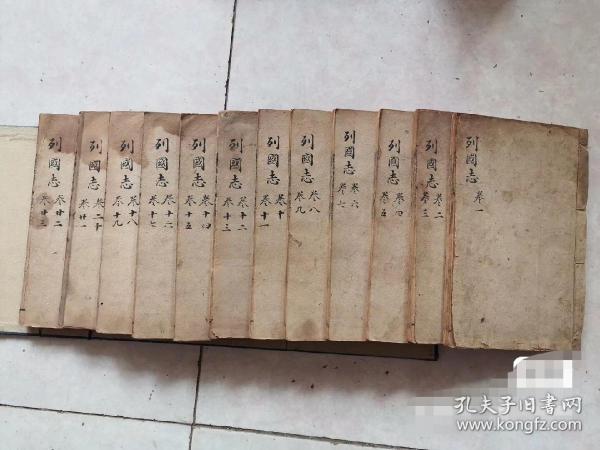 列國志
卷一
列國志
卷二
卷三
列國志
卷四
卷五
列國志
卷六
卷七
列國志
卷八
卷九
列國志
卷十
卷十一
列國志
卷十二
卷十三
列國志
卷十四
卷十五
列國志
卷十六
卷十七
列國志
卷十八
卷十九
列國志
卷二十
卷廿一
列國志
卷廿二
卷廿三
孔夫子旧书网
www.kongfz.com